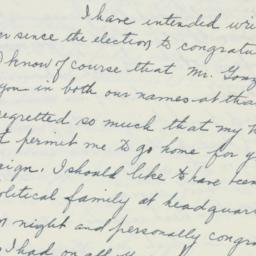 I have intended wri
r since the election to congratu
I know of course that Mr. Gonz
you in both our names at tha
regretted so much that my
t permit me to go home for y
aign. I should like to have been
political family at headquar
n night and personally congra
I had on all